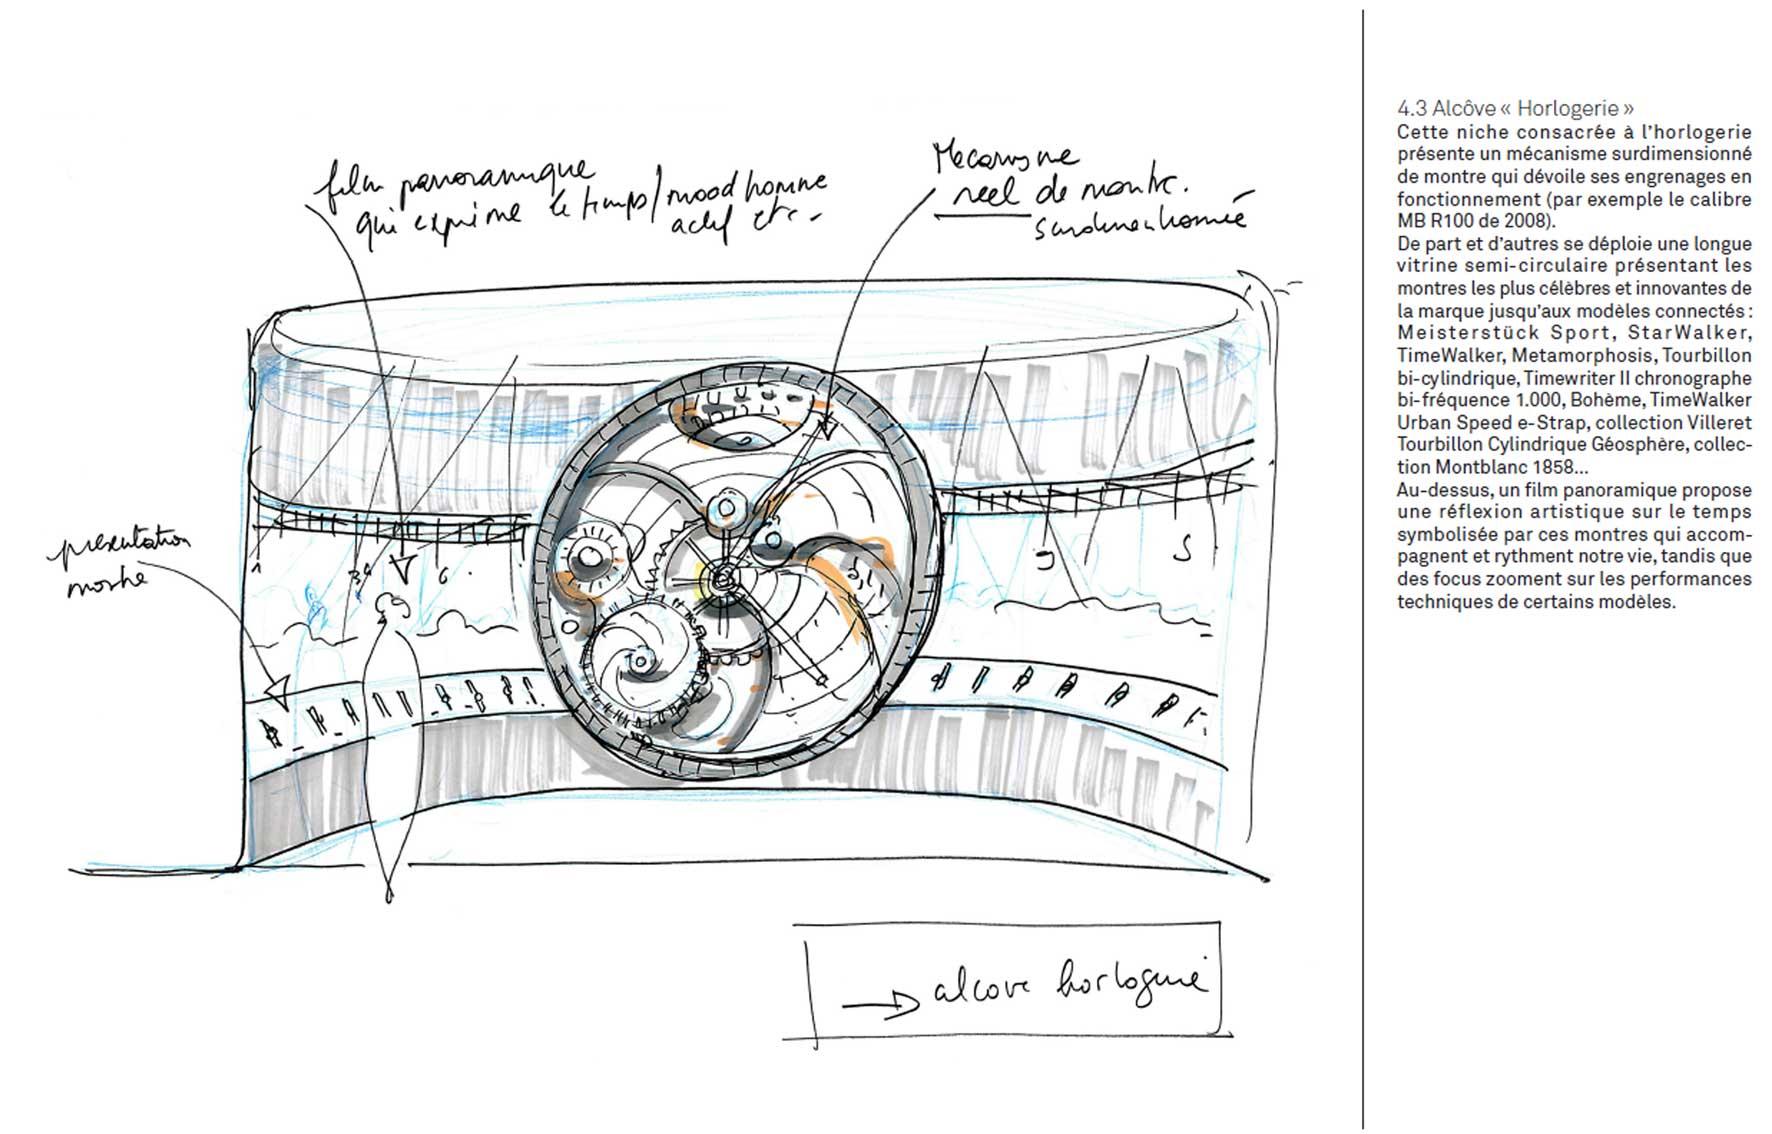 film panoramique
qui exprime le temps / mood homme
actif etc.
Mecanisme
réel de montre.
surdimensionné
presentation
montre
→ alcove horlogerie
4.3 Alcôve « Horlogerie »
Cette niche consacrée à l’horlogerie
présente un mécanisme surdimensionné
de montre qui dévoile ses engrenages en
fonctionnement (par exemple le calibre
MB R100 de 2008).
De part et d’autres se déploie une longue
vitrine semi-circulaire présentant les
montres les plus célèbres et innovantes de
la marque jusqu’aux modèles connectés :
Meisterstück Sport, StarWalker,
TimeWalker, Metamorphosis, Tourbillon
bi-cylindrique, Timewriter II chronographe
bi-fréquence 1.000, Bohème, TimeWalker
Urban Speed e-Strap, collection Villeret
Tourbillon Cylindrique Géosphère, collec-
tion Montblanc 1858...
Au-dessus, un film panoramique propose
une réflexion artistique sur le temps
symbolisée par ces montres qui accom-
pagnent et rythment notre vie, tandis que
des focus zooment sur les performances
techniques de certains modèles.